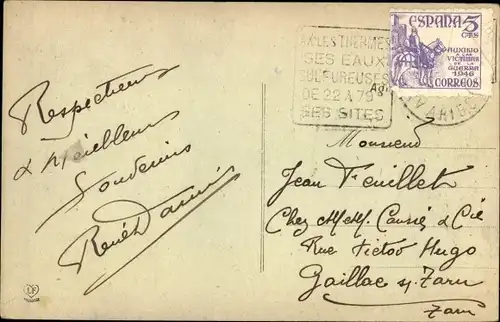 AX-LES THERMES
SES EAUX
SULFUREUSES
DE 22 A 79°
SES SITES
Agr
ESPAÑA 5
CTS
AUXILIO
A LAS
VICTIMAS
DE LA
GUERRA
1946
CORREOS
ARIEGE
Respectueux
& Meilleurs
Souvenirs
René
Monsieur
Jean Feuillet
Chez MMM. Caussé & Cie
Rue Victor Hugo
Gaillac s/ Tarn
Tarn